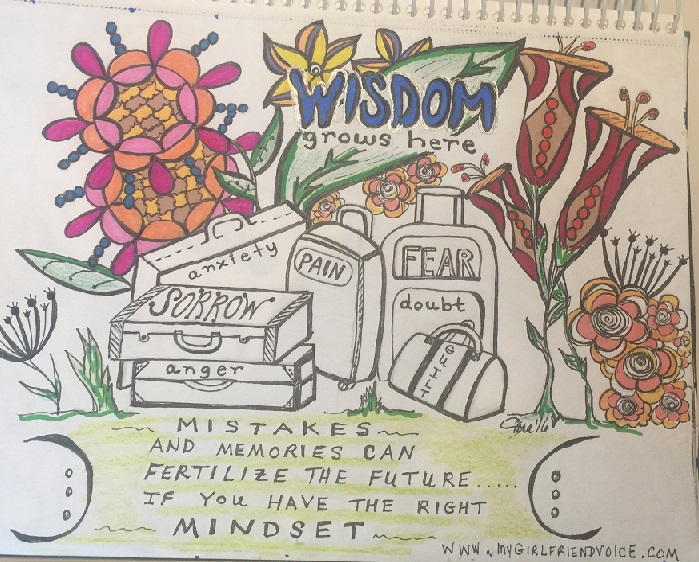 WISDOM
grows here
anxiety
PAIN
FEAR
SORROW
doubt
GUILT
anger
MISTAKES
AND MEMORIES CAN
FERTILIZE THE FUTURE.....
IF YOU HAVE THE RIGHT
MINDSET
WWW.MYGIRLFRIENDVOICE.COM